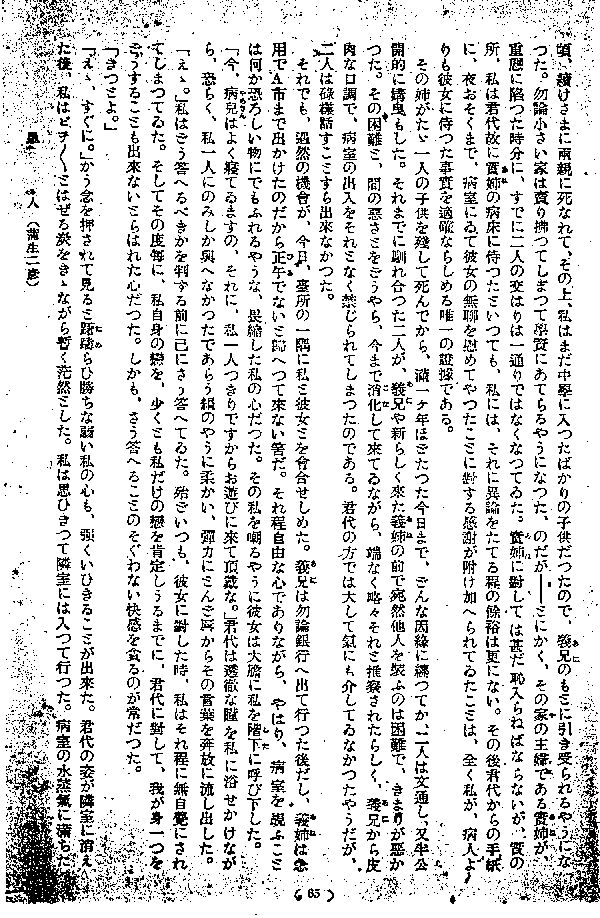 頃、續けさまに兩親に死なれて、その上、私はまだ中學に入つたばかりの子供だつたので、義兄のもとに引き受られるやうにな
つた。勿論小さい家は賣り拂つてしまつて學資にあてらるやうになつた。のだが――とにかく、その家の主婦である實姉が、
重態に陷つた時分に、すでに二人の交はりは一通りではなくなつてゐた。實姉に對しては甚だ恥入らねばならないが、實の
所、私は君代故に實姉の病床に侍つたといつても、私には、それに異論をたてる程の餘裕は更にない。その後君代からの手紙
に、夜おそくまで、病室にゐて彼女の無聊を慰めてやつたことに對する感謝が附け加へられてゐたことは、全く私が、病人よ
りも彼女に侍つた事實を適確ならしめる唯一の證據である。
その姉がたゞ一人の子供を殘して死んでから、滿一ケ年ほどたつた今日まで、どんな因縁に纏つてか、二人は文通し、又半公
開的に媾曳もした。それまでに馴れ合つた二人が、義兄や新らしく來た義姉の前で宛然他人を裝ふのは困難で、きまりが惡か
つた。その困難と、間の惡さとをどうやら、今まで消化して來てゐながら、端なく略々それと推察されたらしく、義兄から皮
肉な口調で、病室の出入をそれとなく禁じられてしまつたのである。君代の方では大して氣にも介してゐなかつたやうだが、
二人は碌樣話すことすら出來なかつた。
それでも、遇然の機會が、今日、臺所の一隅に私と彼女とを會合せしめた。義兄は勿論銀行へ出て行つた後だし、義姉は急
用でA市まで出かけたのだから正午でないと歸へつて來ない筈だ。それ程自由な心でありながら、やはり、病室を覗ふこと
は何か恐ろしい物にでもふれるやうな、畏縮した私の心だつた。その私を嘲るやうに彼女は大膽に私を階下に呼び下した。
「今、病兒はよく寢てゐますの、それに、私一人つきりですからお遊びに來て頂戴な。」君代は透徹な瞳を私に浴せかけなが
ら、恐らく、私一人にのみしか與へなかつたであらう絹のやうに柔かい、彈力にとんだ唇からその言葉を奔放に流し出した。
「えゝ。」私はどう答へるべきかを判する前に已にさう答へてゐた。殆どいつも、彼女に對した時、私はそれ程に無自覺にされ
てしまつてゐた。そしてその度毎に、私自身の戀を、少くとも私だけの戀を肯定しうるまでに、君代に對して、我が身一つを
どうすることも出來ないとらはれた心だつた。しかも、さう答へることのそぐわない快感を貪るのが常だつた。
「きつとよ。」
「えゝ、すぐに。」かう念を押されて見ると躊躇らひ勝ちな弱い私の心も、强くいひきることが出來た。君代の姿が隣室に消え
た後、私はピチ〱とはぜる炭をきゝながら暫く茫然とした。私は思ひきつて隣室には入つて行つた。病室の水蒸氣に滿ちた
人(蒲生二彦)
(63)